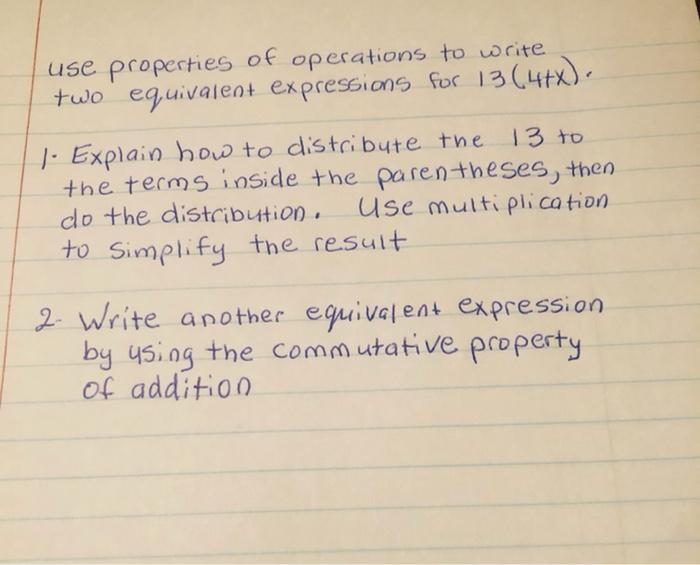 use properties of operations to write
two equivalent expressions for 13(4+x).
1. Explain how to distribute the 13 to
the terms inside the parentheses, then
do the distribution. Use multiplication
to simplify the result
2- Write another equivalent expression
by using the commutative property
of addition